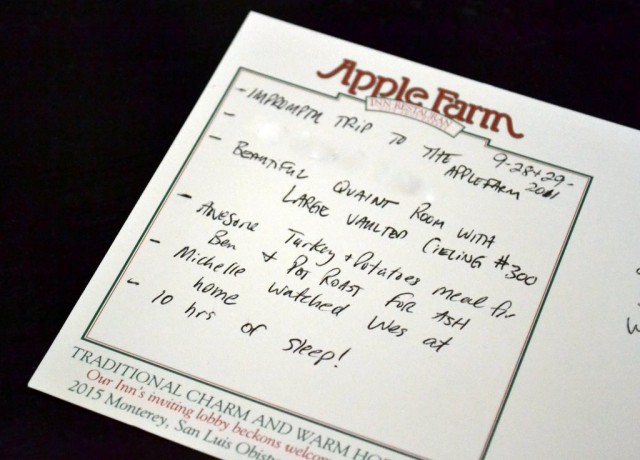 Apple Farm
INN RESTAURAN
9-28+29-
- IMPROMPTU TRIP TO THE APPLEFARM 2011
-
- BEAUTIFUL QUAINT ROOM WITH
LARGE VAULTED CIELING #300
- AWESOME Turkey + Potatoes meal for
Ben + POT ROAST FOR ASH
- Michelle watched Wes at
home
- 10 hrs of sleep!
TRADITIONAL CHARM AND WARM HO
Our Inn's inviting lobby beckons welcom
2015 Monterey, San Luis Obis